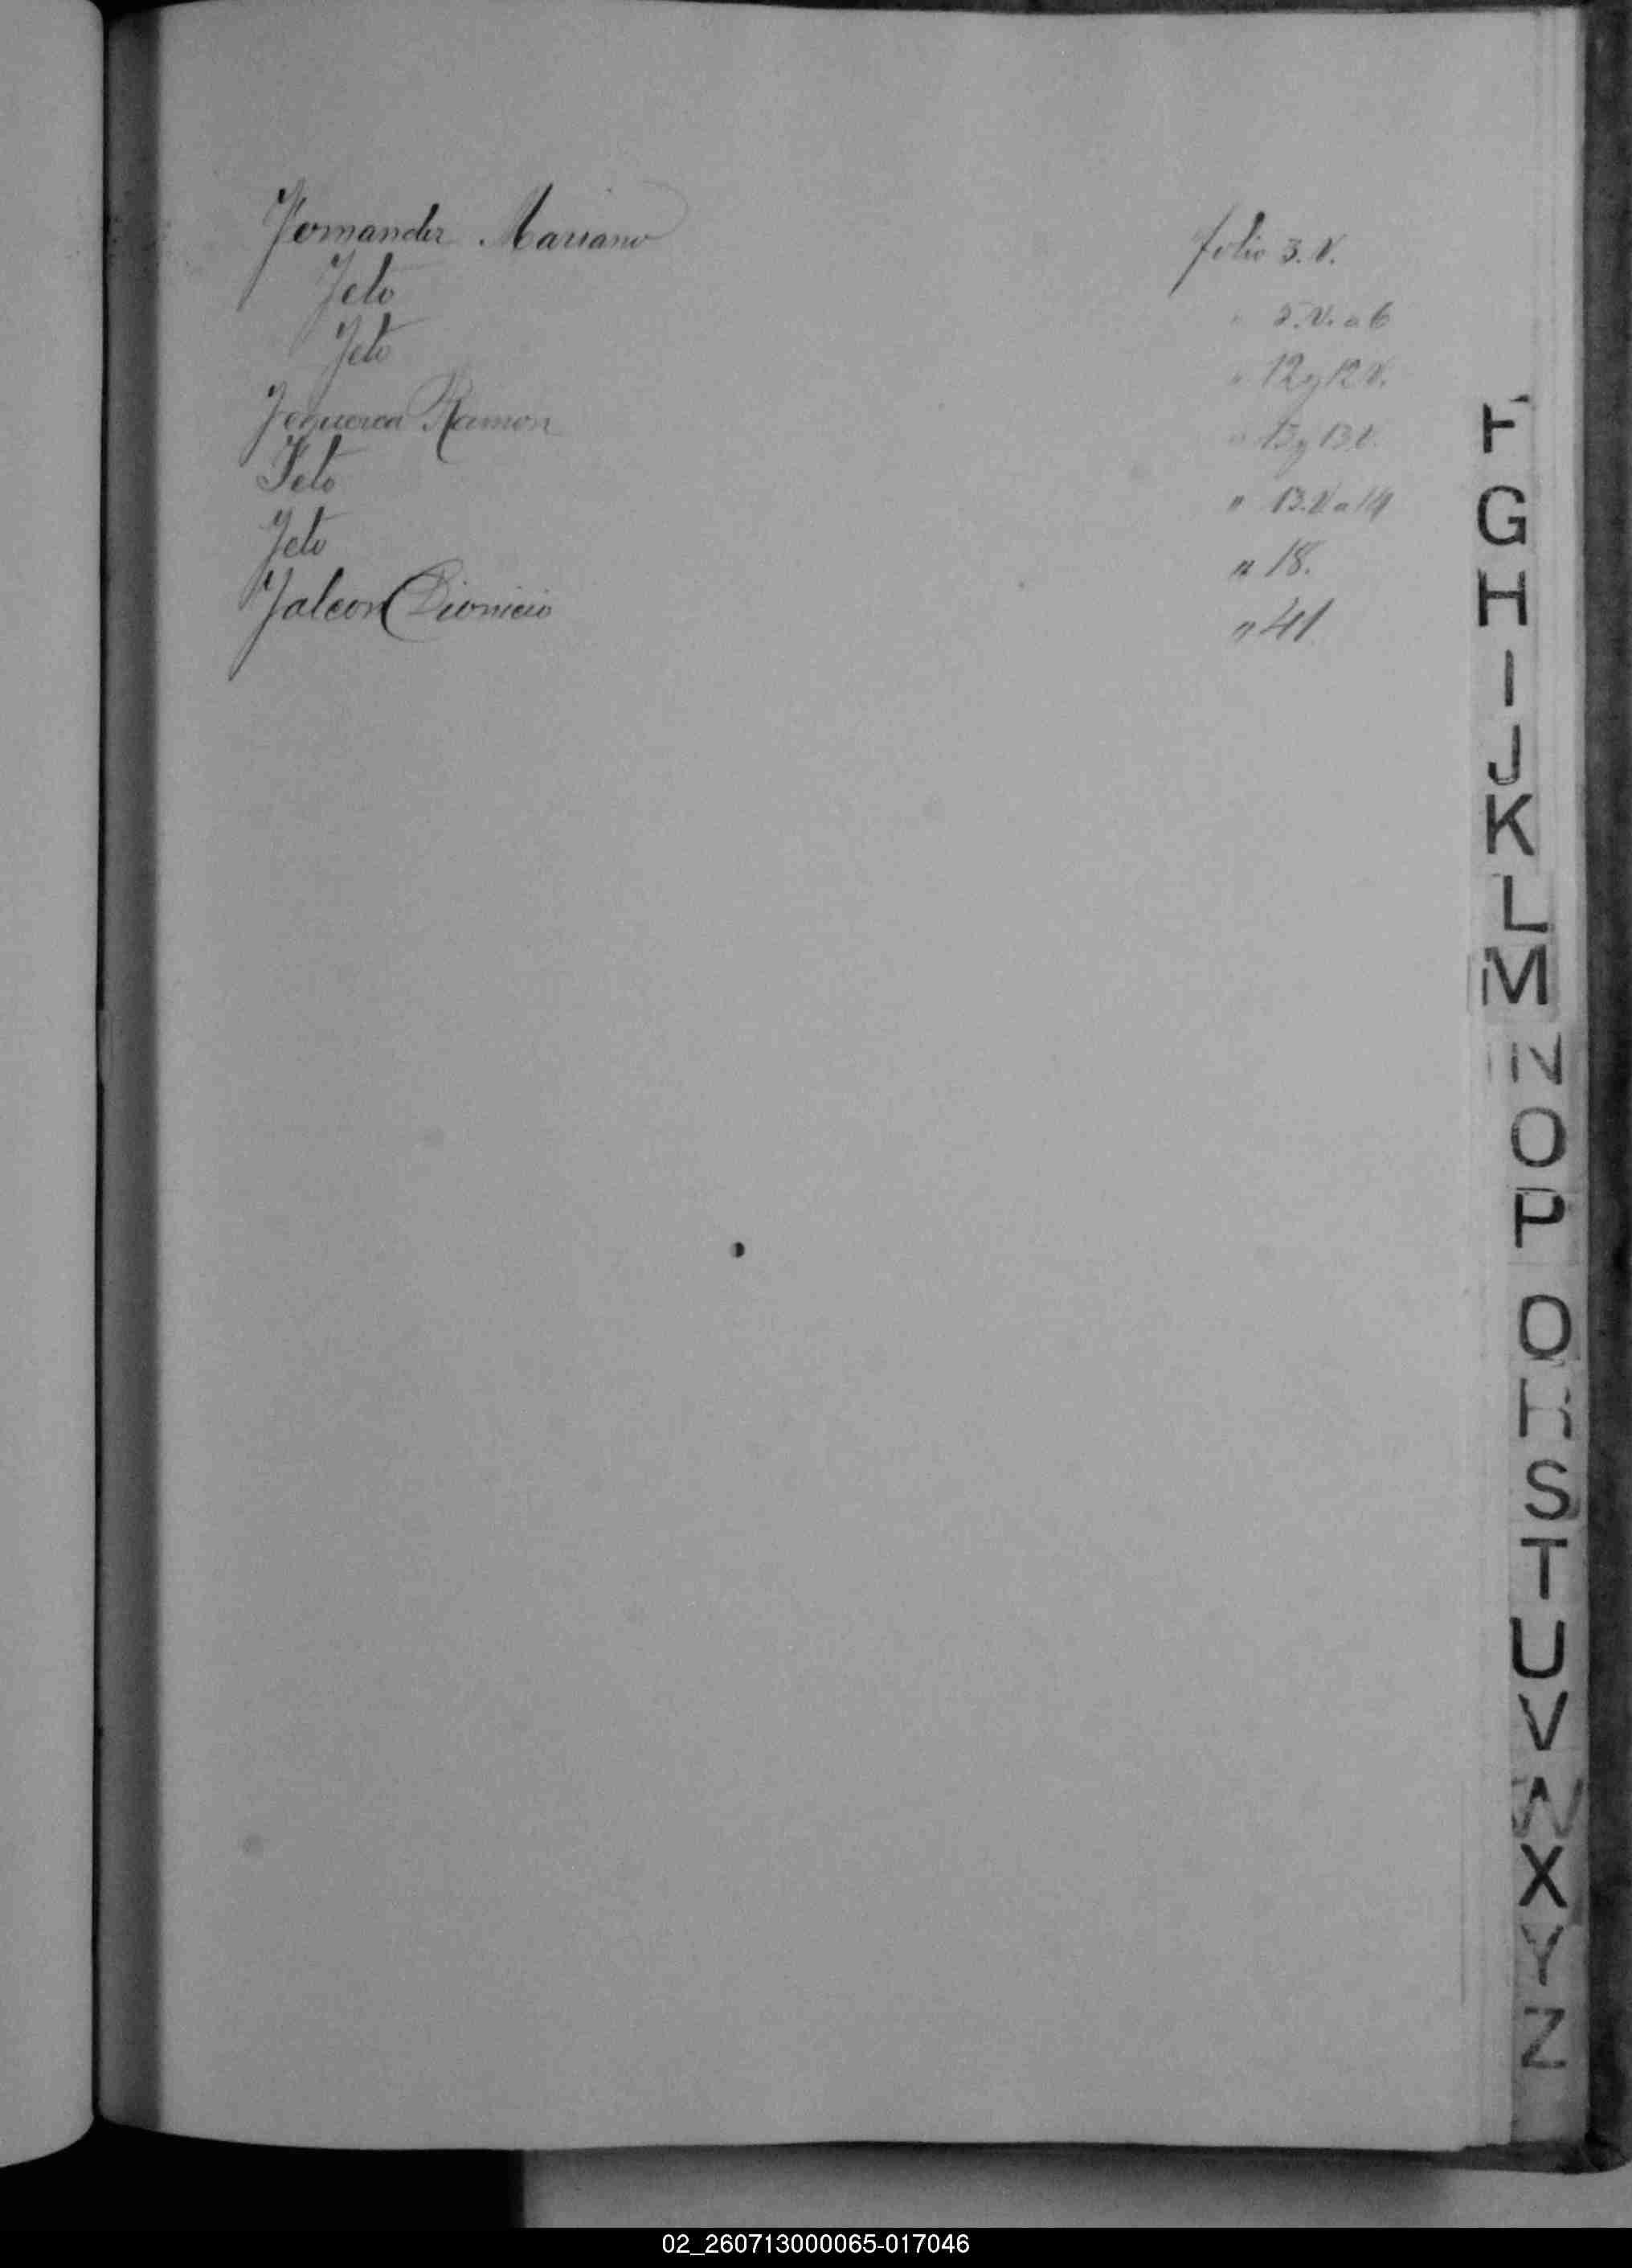 Fernander Mariano folio 3. V.
Feto " 5. V. a 6
Feto " 12 y 12 V.
Ramon " 13 y 13 V.
Feto " 13. V a 14
Feto " 18.
Falcon Dionicio " 41.
F
G
H
I
J
K
L
M
N
O
P
Q
R
S
T
U
V
W
X
Y
Z
02_260713000065-017046